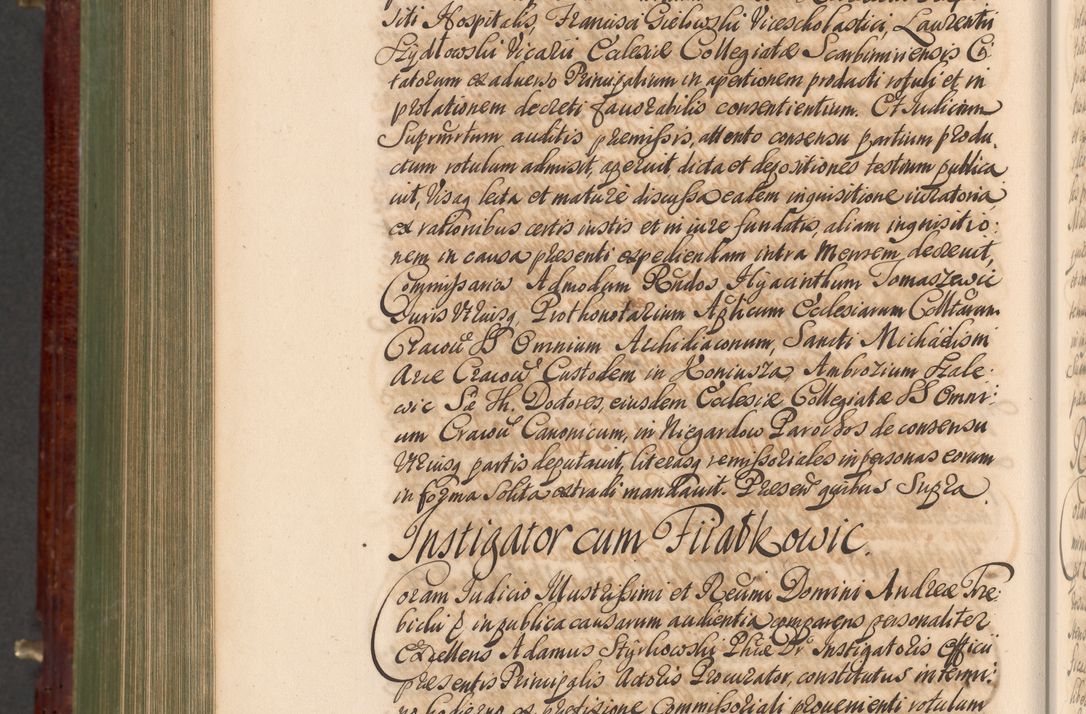 siti Hospitalis, Francisci Gielowski Vicescholastici, Laurentii
Szydłowski Vicarii Ecclesiæ Collegiatæ Scarbimiriensis Ci
tatorum ex adverso Principalium in apertionem producti rotuli et in
prolationem decreti favorabilis consentientium. Et Judicium
Suprūrtum auditis præmissis, attento consensu partium produ,
ctum rotulum admisit, aperuit dicta et depositiones testium publica
vit, Visaq lecta et maturè discussa eadem inquisitione
ex rationibus certis iustis et in iure fundatis, aliam inquisitio:
nem in causa presenti expediendam intra Mensem decrevit,
Commissarios Admodum Rñdos Hyacinthum Tomaszewic
Juris Utriusq Prothonotarium Aplicum Ecclesiarum Colltarum
Cracoū SS Omnium Archidiaconum, Sancti Michaëlis in
Arce Cracoū Custodem in Koniusza Ambrozium Szale
wic Sæ Th. Doctores, eiusdem Ecclesiæ Collegiatæ SS Omni:
um Cracoū Canonicum, in Niegardow Parochos de consensu
Utriusq partis deputavit, literasq remissoriales in personas eorum
in forma solita extradi mandavit. Presen quibus Supra
Instigator cum Fiiałkowic.
Coram Judicio Illustrissimi et Reñdmi Domini Andreæ Trze
bicki P. in publica causarum audientia comparens personaliter
Excellens Adamus Styrkowski Phiæ Dr Instigatoris Officii
præsentis Principalis Actoris Procurator, constitutus in termi:
no hodierno ex præfixione Commissoriali provenienti rotulum